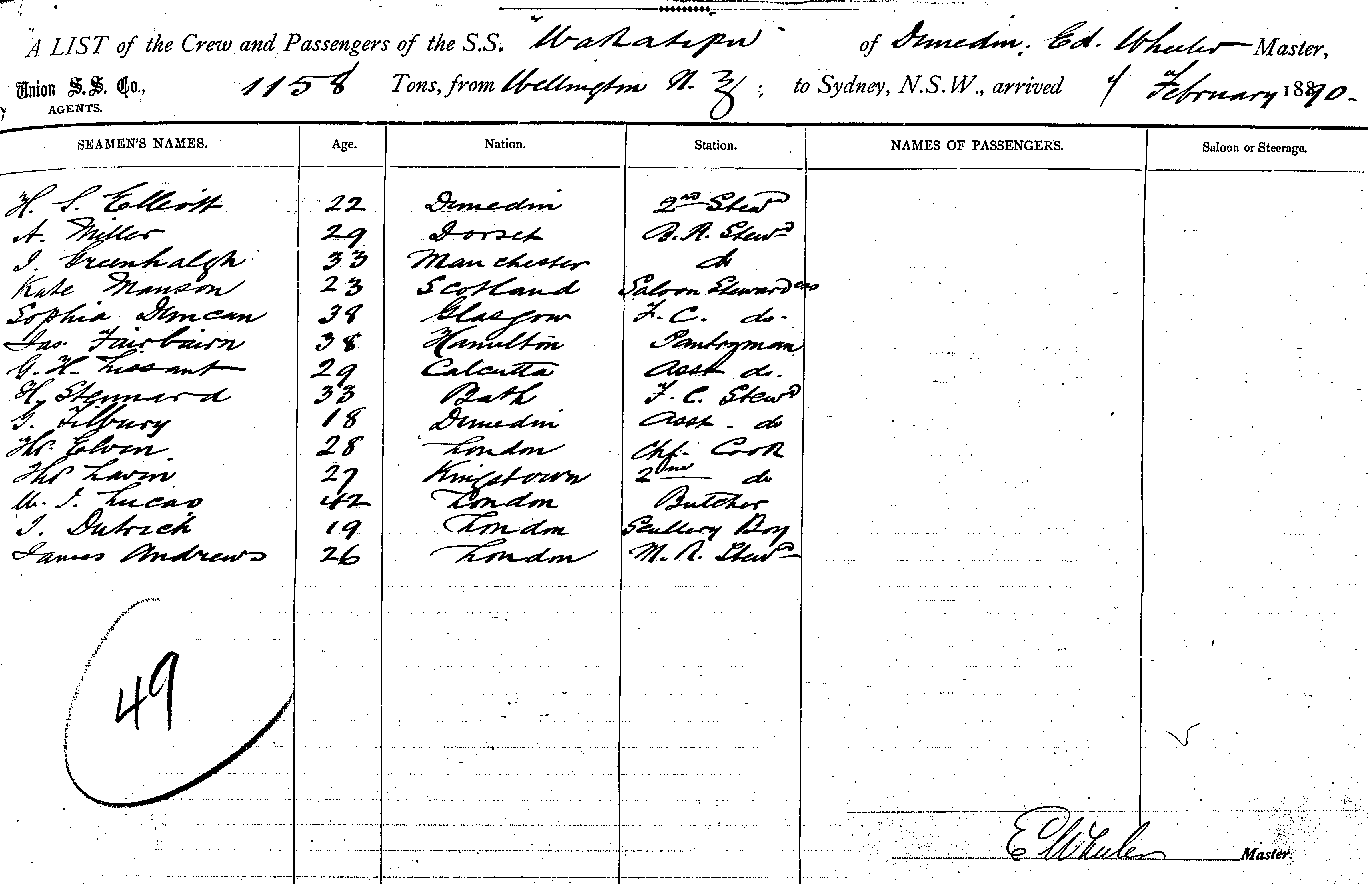 "A LIST of the Crew and Passengers of the S.S. "Wakatipu" of Dunedin, Ed. Wheeler Master,
Union S.S. Co., AGENTS. 1158 Tons, from Wellington N.Z; to Sydney, N.S.W., arrived February 1890-
SEAMEN'S NAMES. Age. Nation. Station. NAMES OF PASSENGERS. Saloon or Steerage.
H. S. Elliott 22 Dunedin 2nd Stewd
A. Miller 29 Dorset B.R. Stewd
J. Greenhalgh 33 Manchester do
Kate Manson 23 Scotland Saloon Stewardess
Sophia Duncan 38 Glasgow F.C. do.
Jas. Fairbairn 38 Hamilton Pantryman
G. H. Lissant 29 Calcutta Asst do.
H. Stennard 33 Bath F.C. Stewd
G. Tilbury 18 Dunedin Asst - do
Ths. Elvin 28 London Chf. Cook
Ths Lavin 27 Kingstown 2nd do
W. J. Lucas 42 London Butcher
J. Dutrich 19 London Scullery Boy
James Andrews 26 London M.R. Stewd
49
E Wheeler Master.